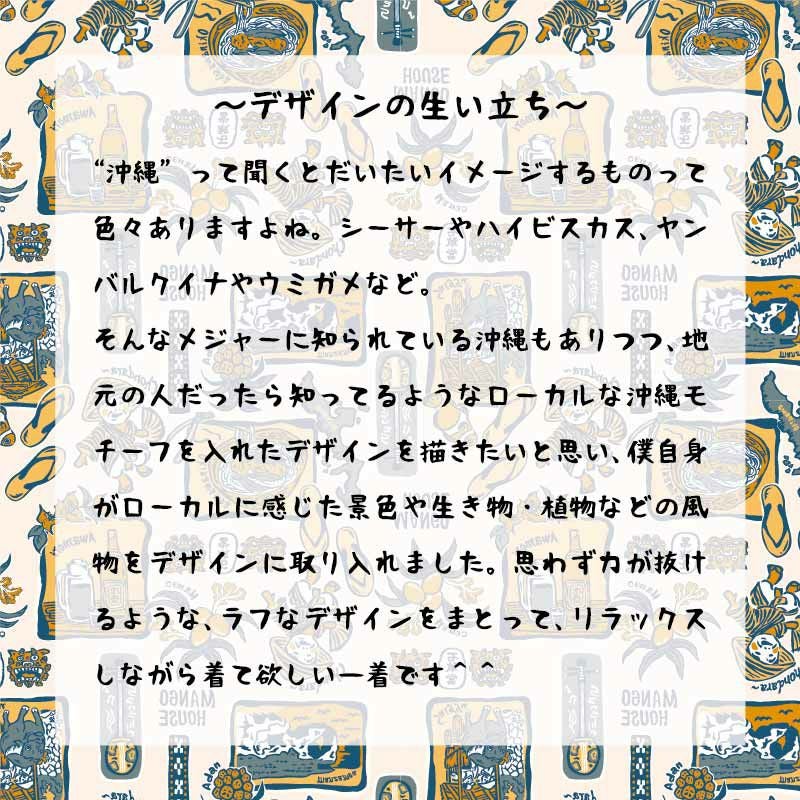 ～デザインの生い立ち～
“沖縄”って聞くとだいたいイメージするものって
色々ありますよね。シーサーやハイビスカス、ヤン
バルクイナやウミガメなど。
そんなメジャーに知られている沖縄もありつつ、地
元の人だったら知ってるようなローカルな沖縄モ
チーフを入れたデザインを描きたいと思い、僕自身
がローカルに感じた景色や生き物・植物などの風
物をデザインに取り入れました。思わず力が抜け
るような、ラフなデザインをまとって、リラックス
しながら着て欲しい一着です＾＾
MANGO
HOUSE
MANGO
HOUSE
MANGO
HOUSE
MANGO
HOUSE
Adan